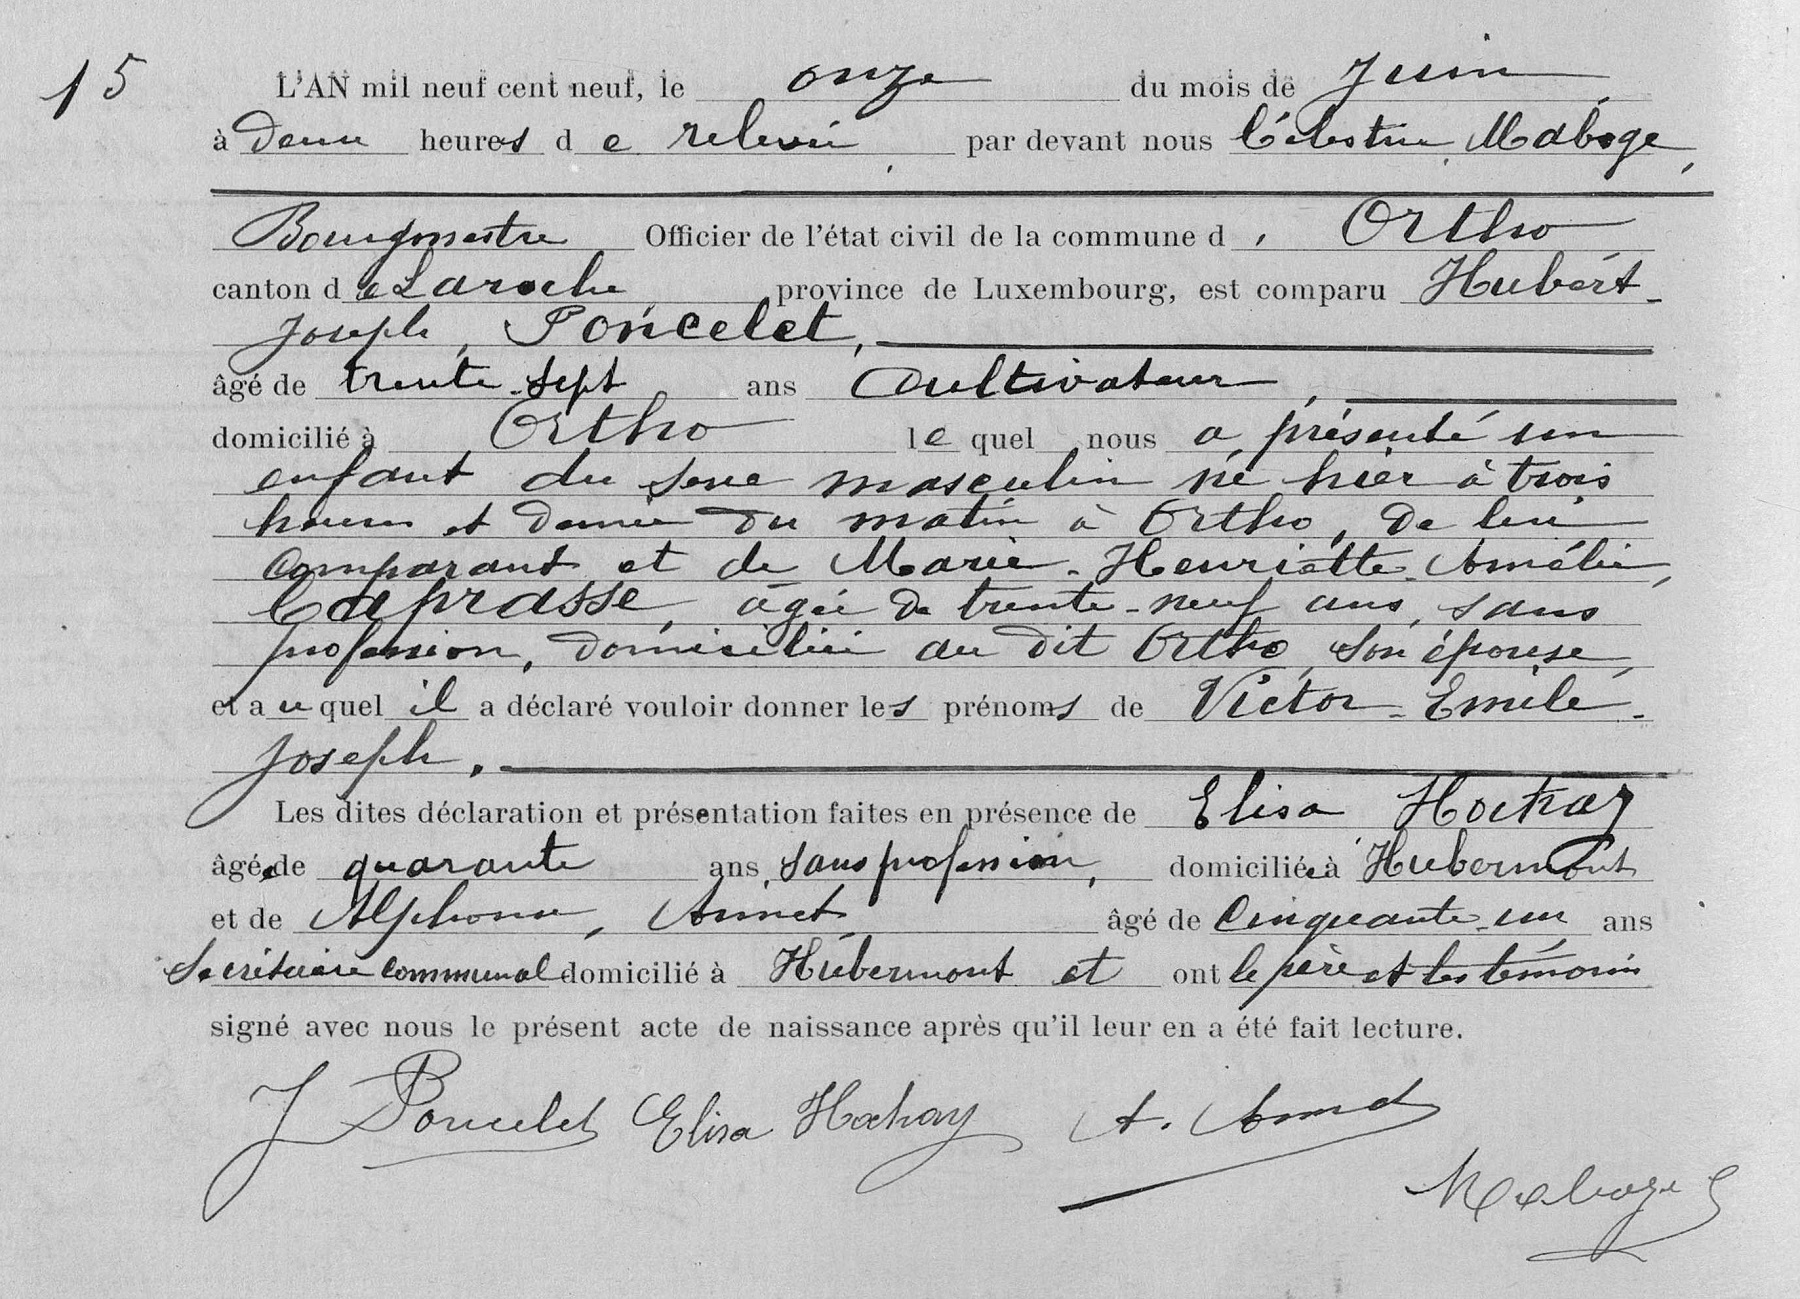 15
L'AN mil neuf cent neuf, le onze du mois de Juin
à deux heures de relevée, par devant nous Célestin Maboge,
Bourgmestre Officier de l'état civil de la commune d' Ortho
canton de Laroche province de Luxembourg, est comparu Hubert-
Joseph, Poncelet,
âgé de trente-sept ans Cultivateur,
domicilié à Ortho le quel nous a présenté un
enfant du sexe masculin né hier à trois
heures et demie du matin à Ortho, de lui
comparant et de Marie-Henriette-Amélie,
Caprasse, âgée de trente-neuf ans, sans
profession, domiciliée au dit Ortho, son épouse,
et au quel il a déclaré vouloir donner les prénoms de Victor-Emile-
Joseph.
Les dites déclaration et présentation faites en présence de Elisa Hockay
âgée de quarante ans, sans profession, domiciliée à Hubermont
et de Alphonse, Annet, âgé de Cinquante-un, ans
Secrétaire communal domicilié à Hubermont et ont le père et les témoins
signé avec nous le présent acte de naissance après qu'il leur en a été fait lecture.
J Poncelet Elisa Hockay A. Annet
Maboge